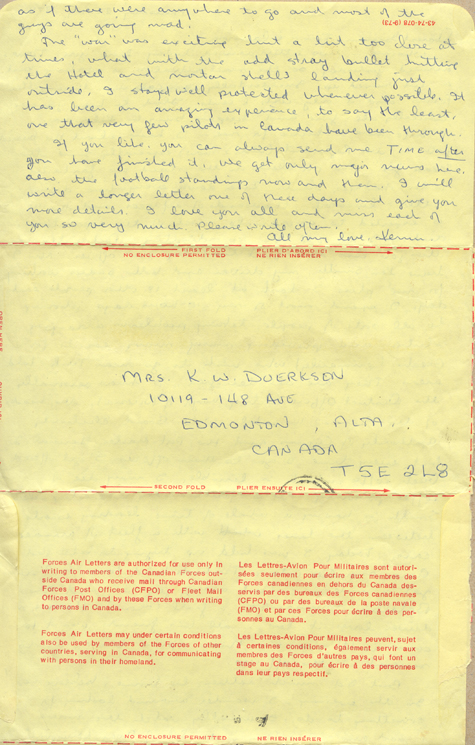 as if there were anywhere to go and most of the
guys are going mad.
43-74-078 (9-73)
The "war" was exciting but a bit too close at
times, what with the odd stray bullet hitting
the Hotel and mortar shells landing just
outside, I stayed well protected whenever possible. It
has been an amazing experience, to say the least,
one that very few pilots in Canada have been through.
If you like, you can always send me TIME after
you have finished it, we get only major news here,
also the football standings now and then. I will
write a longer letter one of these days and give you
more details. I love you all and miss each of
you so very much. Please write often.
All my love,
FIRST FOLD PLIER D'ABORD ICI
NO ENCLOSURE PERMITTED NE RIEN INSÉRER
OPEN HERE
MRS. K. W. DUERKSEN
10119-148 AVE
EDMONTON, ALTA..
CANADA
T5E 2L8
SECOND FOLD PLIER ENSUITE ICI
Forces Air Letters are authorized for use only in
writing to members of the Canadian Forces out-
side Canada who receive mail through Canadian
Forces Post Offices (CFPO) or Fleet Mail
Offices (FMO) and by these Forces when writing
to persons in Canada.
Forces Air Letters may under certain conditions
also be used by members of the Forces of other
countries, serving in Canada, for communicating
with persons in their homeland.
Les Lettres-Avion Pour Militaires sont autori-
sées seulement pour écrire aux membres des
Forces canadiennes en dehors du Canada des-
servis par des bureaux des Forces canadiennes
(CFPO) ou par des bureaux de la poste navale
(FMO) et par ces Forces pour écrire à des per-
sonnes au Canada.
Les Lettres-Avion Pour Militaires peuvent, sujet
à certaines conditions, également servir aux
membres des Forces d'autres pays, qui font un
stage au Canada, pour écrire à des personnes
dans leur pays respectif.
NO ENCLOSURE PERMITTED NE RIEN INSÉRER